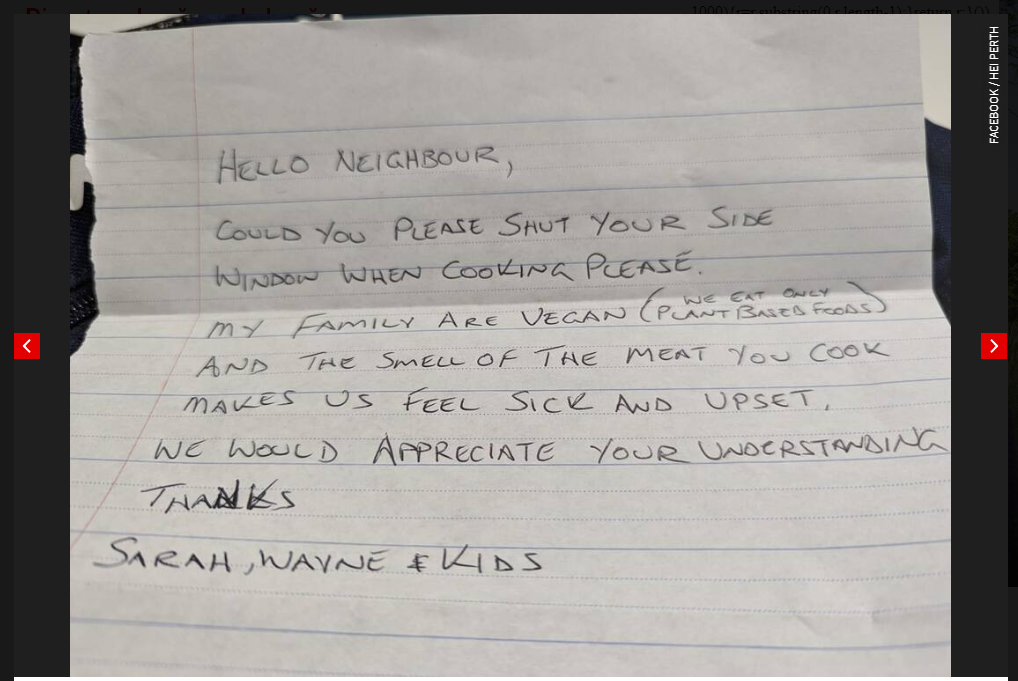 FACEBOOK / HEI PERTH
HELLO NEIGHBOUR,
COULD YOU PLEASE SHUT YOUR SIDE
WINDOW WHEN COOKING PLEASE.
MY FAMILY ARE VEGAN (WE EAT ONLY
PLANT BASED FOODS)
AND THE SMELL OF THE MEAT YOU COOK
MAKES US FEEL SICK AND UPSET.
WE WOULD APPRECIATE YOUR UNDERSTANDING
THANKS
SARAH, WAYNE & KIDS